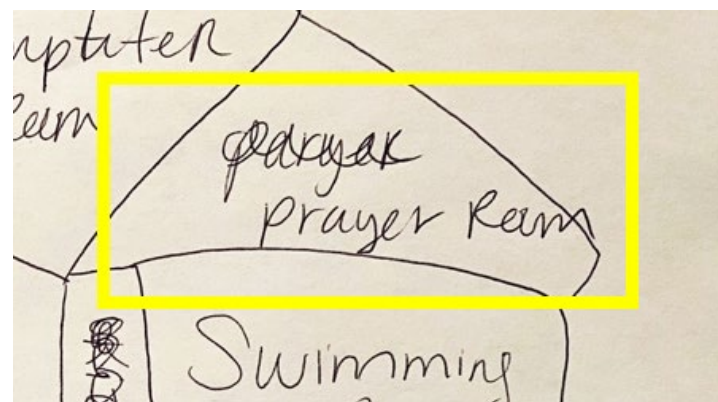 mputer
Room
prayer Room
Swimming